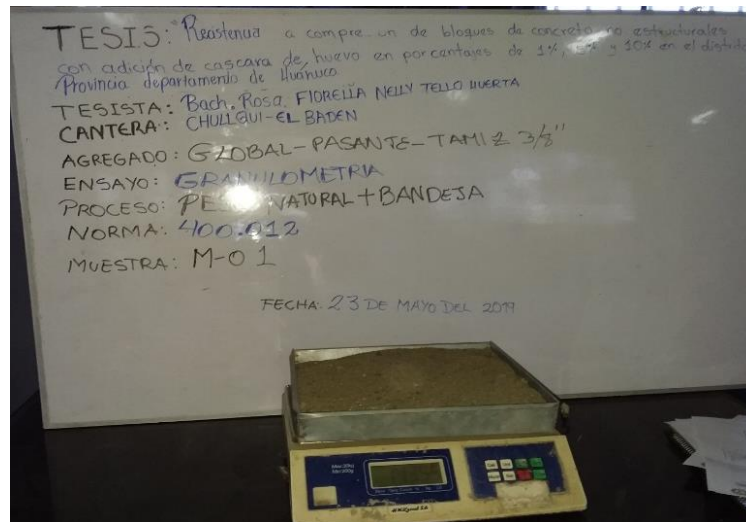 TESIS: Resistencia a compre un de bloques de concreto no estructurales
con adición de cascara de huevo en porcentajes de 1%, y 10% en el distrito
Provincia departamento de Huánuco
TESISTA: Bach. Rosa. FIORELLA NELLY TELLO HUERTA
CANTERA: CHULLQUI-EL BADEN
AGREGADO: GLOBAL-PASANTE-TAMIZ 3/8"
ENSAYO: GRANULOMETRIA
PROCESO: PESO NATURAL + BANDEJA
NORMA: 400.012
MUESTRA: M-01
FECHA: 23 DE MAYO DEL 2019